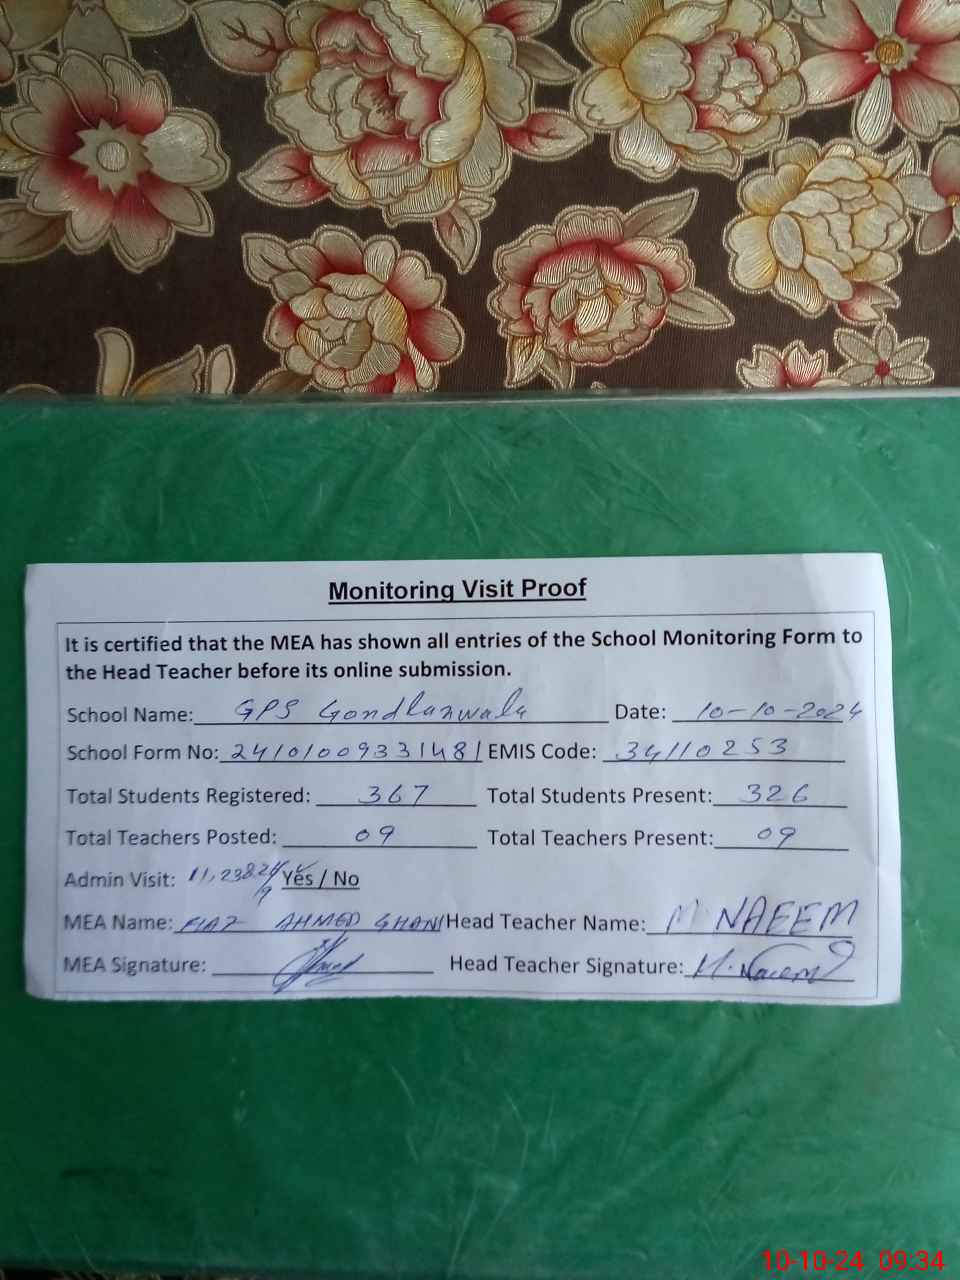 Monitoring Visit Proof
It is certified that the MEA has shown all entries of the School Monitoring Form to
the Head Teacher before its online submission.
School Name: GPS Gondlanwala Date: 10-10-2024
School Form No: 2410100933148 EMIS Code: 34110253
Total Students Registered: 367 Total Students Present: 326
Total Teachers Posted: 09 Total Teachers Present: 09
Admin Visit: Yes / No
MEA Name: FIAZ AHMED GHANI Head Teacher Name: M. NAEEM
MEA Signature: Head Teacher Signature: M. Naeem
10-10-24 09:34